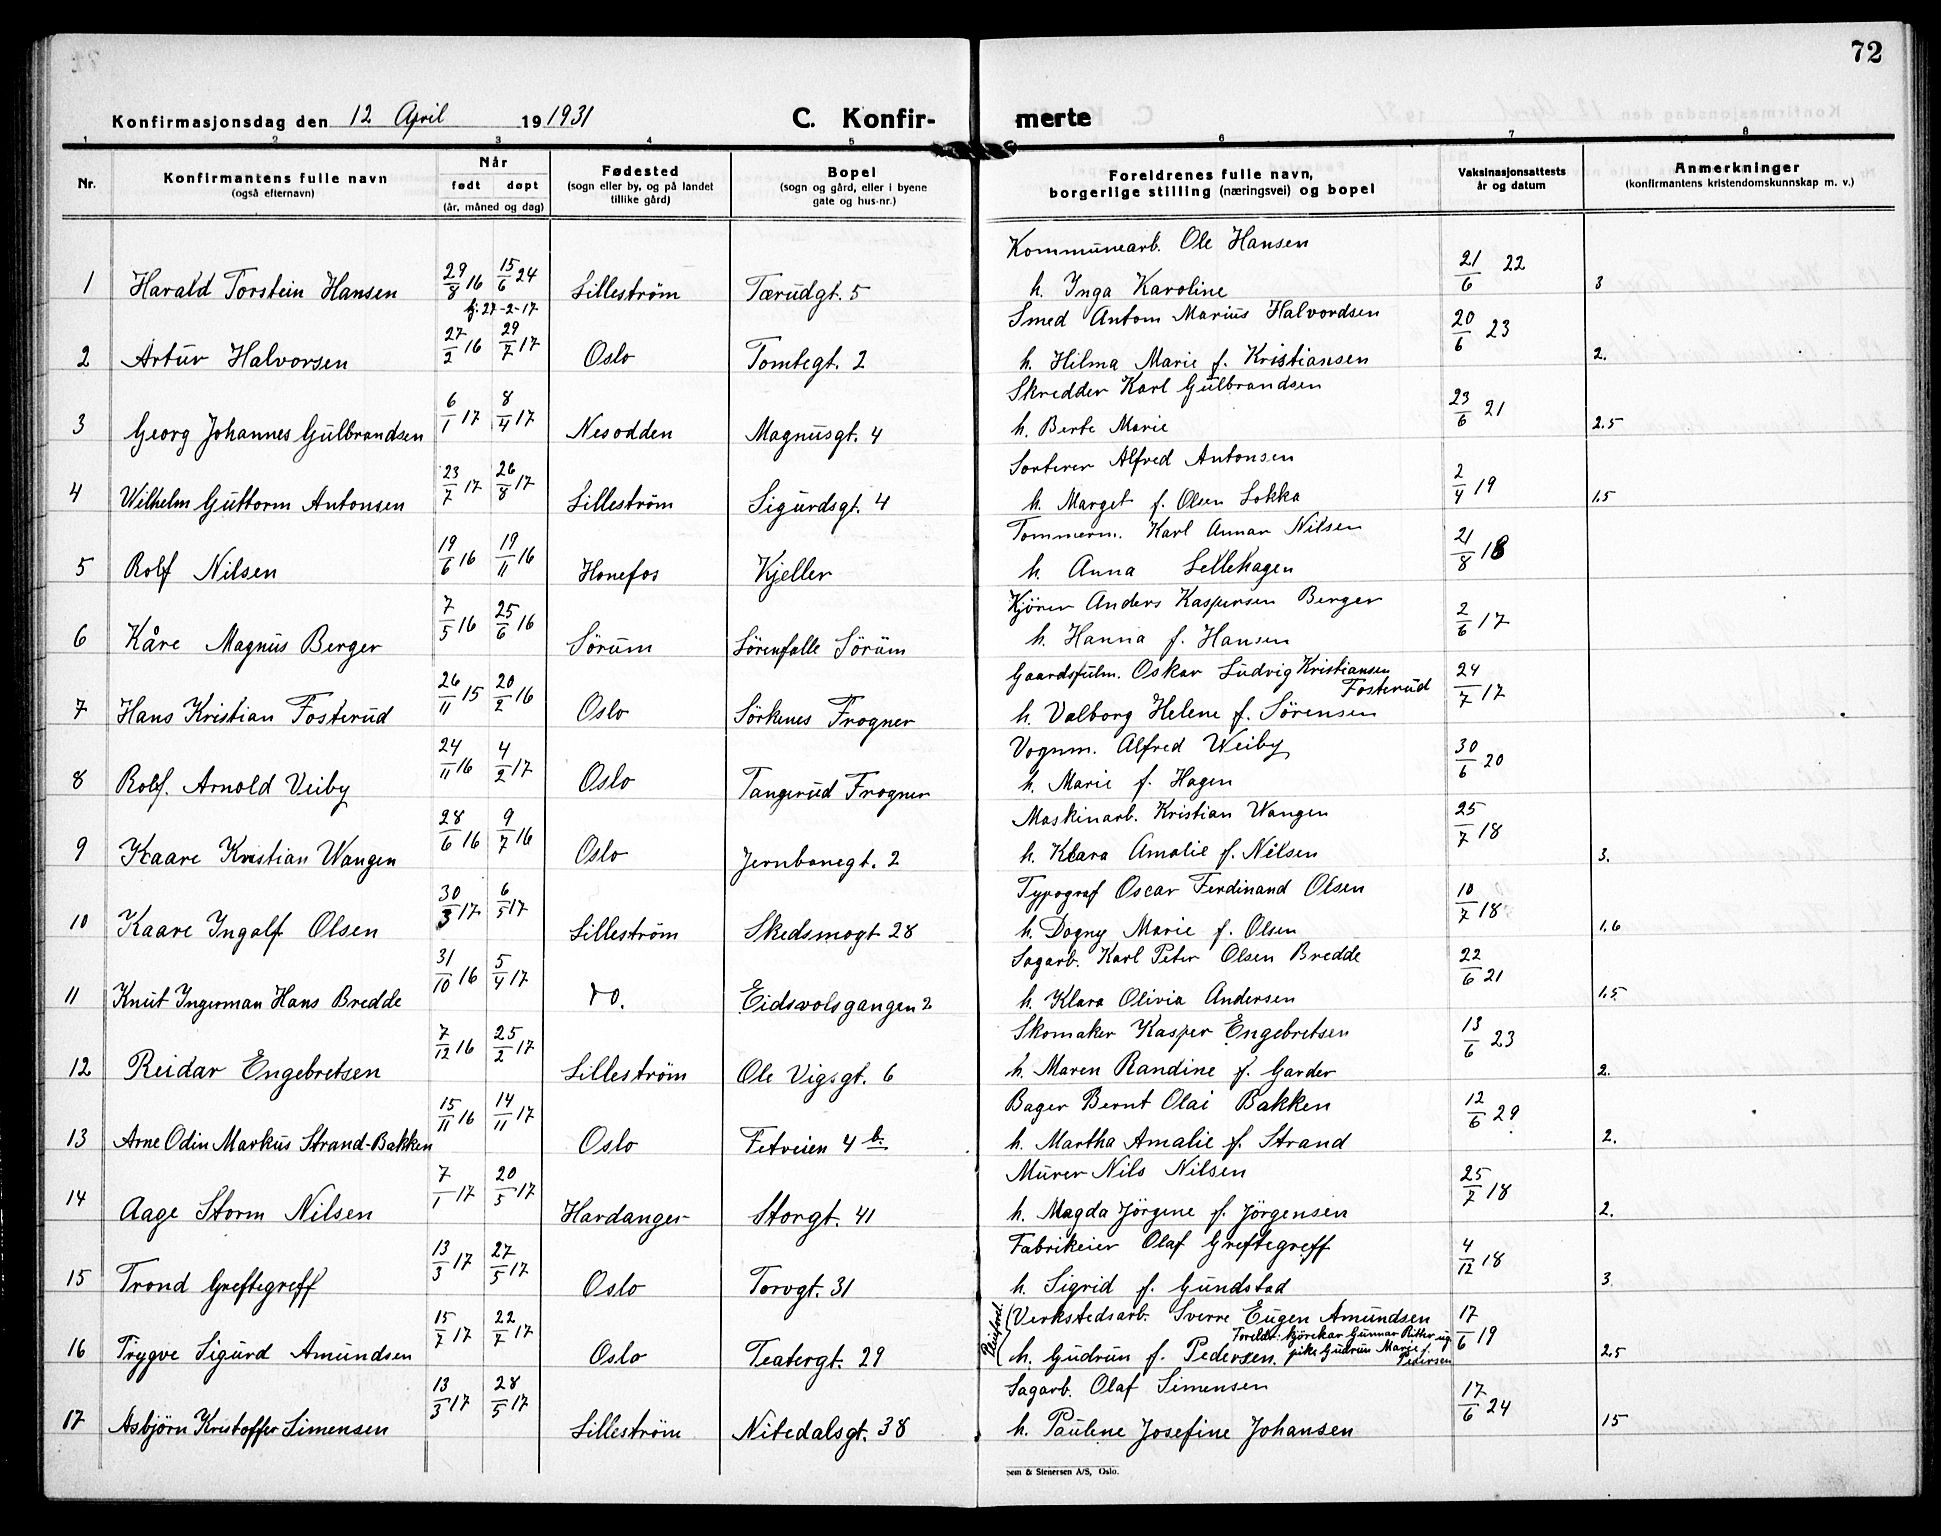 72
Konfirmasjonsdag den 12 April 19 1931 C. Konfir- merte
1 2 3 4 5 6 7 8
Nr. Konfirmantens fulle navn (også efternavn) Når født døpt (år, måned og dag) Fødested (sogn eller by, og på landet tillike gård) Bopel (sogn og gård, eller i byene gate og hus-nr.) Foreldrenes fulle navn, borgerlige stilling (næringsvei) og bopel Vaksinasjonsattests år og datum Anmerkninger (konfirmantens kristendomskunnskap m. v.)
Kommunearb. Ole Hansen
1 Harald Torstein Hansen 29/8 16 15/6 24 Lilleström Tærudgt. 5 h. Inga Karoline 21/6 22 3
hj: 27-2-17
Smed Antom Marius Halvordsen
2 Artur Halvorsen 27/2 16 29/7 17 Oslo Tomtegt. 2 h. Hilma Marie f. Kristiansen 20/6 23 2.
Skredder Karl Gulbrandsen
3 Georg Johannes Gulbrandsen 6/1 17 8/4 17 Nesodden Magnusgt. 4 h. Berte Marie 23/6 21 2.5
Sorterer Alfred Antonsen
4 Wilhelm Guttorm Antonsen 23/7 17 26/8 17 Lilleström Sigurdsgt. 4 h. Marget f. Olsen Lokka 2/4 19 1.5
Tommerm. Karl Annar Nilsen
5 Rolf Nilsen 19/6 16 19/11 16 Honefos Kjeller h. Anna Lellehagen 21/8 18
Kjörer Anders Kaspersen Berger
6 Kåre Magnus Berger 7/5 16 25/6 16 Sörum Sörenfalle Sörum h. Hanna f. Hansen 2/6 17
Gaardsfulm. Oskar Ludvig Kristiansen Fosterud
7 Hans Kristian Fosterud 26/11 15 20/2 16 Oslo Sörkenes Frogner h. Valborg Helene f. Sörensen 24/7 17
Vognm. Alfred Weiby
8 Rolf. Arnold Veiby 24/11 16 4/2 17 Oslo Tangerud Frogner h. Marie f. Hagen 30/6 20
Maskinarb. Kristian Wangen
9 Kaare Kristian Wangen 28/6 16 9/7 16 Oslo Jernbanegt. 2 h. Klara Amalie f. Nilsen 25/7 18 3.
Typograf Oscar Ferdinand Olsen
10 Kaare Ingolf Olsen 30/3 17 6/5 17 Lilleström Skedsmogt 28 h. Dagny Marie f. Olsen 10/7 18 1.6
Sagarb. Karl Peter Olsen Bredde
11 Knut Ingerman Hans Bredde 31/10 16 5/4 17 do. Eidsvolsgangen 2 h. Klara Olivia Andersen 22/6 21 1.5
Skomaker Kasper Engebretsen
12 Reidar Engebretsen 7/12 16 25/2 17 Lilleström Ole Vigsgt. 6 h. Maren Randine f. Garder 13/6 23 2.
Bager Bernt Olai Bakken
13 Arne Odin Markus Strand-Bakken 15/11 16 14/11 17 Oslo Fetveien 4 b. h. Martha Amalie f. Strand 12/6 29 2.
Murer Nils Nilsen
14 Aage Storm Nilsen 7/1 17 20/5 17 Hardanger Storgt. 41 h. Magda Jörgine f. Jörgensen 25/7 18 2.
Fabrikeier Olaf Greftegreff
15 Trond Greftegreff 13/3 17 27/5 17 Oslo Torvgt. 31 h. Sigrid f. Gundstad 4/12 18 3
Pleieforel. Verkstedsarb. Sverre Eugen Amundsen
Foreldr: kjörekar Gunnar Ritter ug
16 Trygve Sigurd Amundsen 15/7 17 22/7 17 Oslo Teatergt. 29 h. Gudrun f. Pedersen. pike Gudrun Marie f. Pedersen 17/6 19 2.5
Sagarb. Olaf Simensen
17 Asbjörn Kristoffer Simensen 13/3 17 28/5 17 Lilleström Nitedalsgt. 38 h. Paulene Josefine Johansen 17/6 24 15
Sem & Stenersen A/S, Oslo.